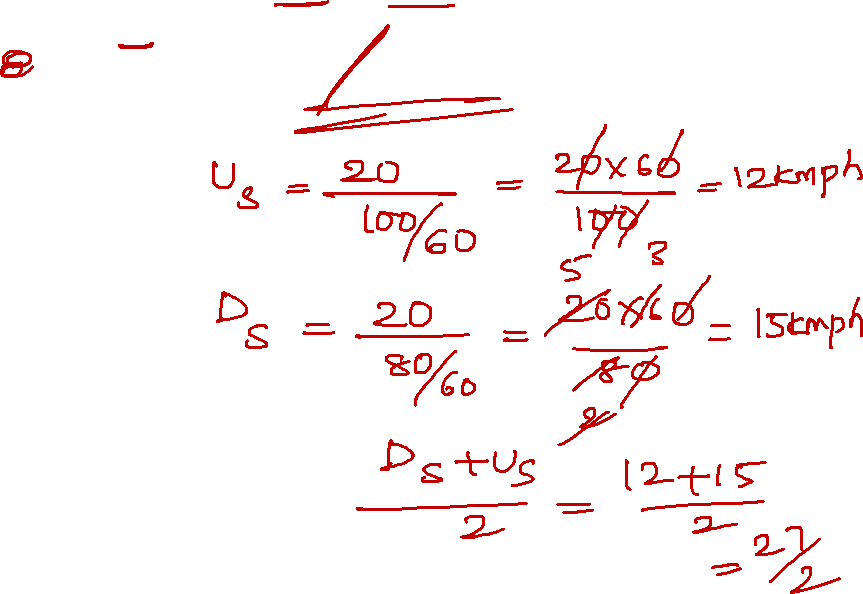 8 -
U_S = 20 / (100/60) = (20 × 60) / 100 = 12 kmph
5 3
D_S = 20 / (80/60) = (20 × 60) / 80 = 15 kmph
2
(D_S + U_S) / 2 = (12 + 15) / 2
= 27/2